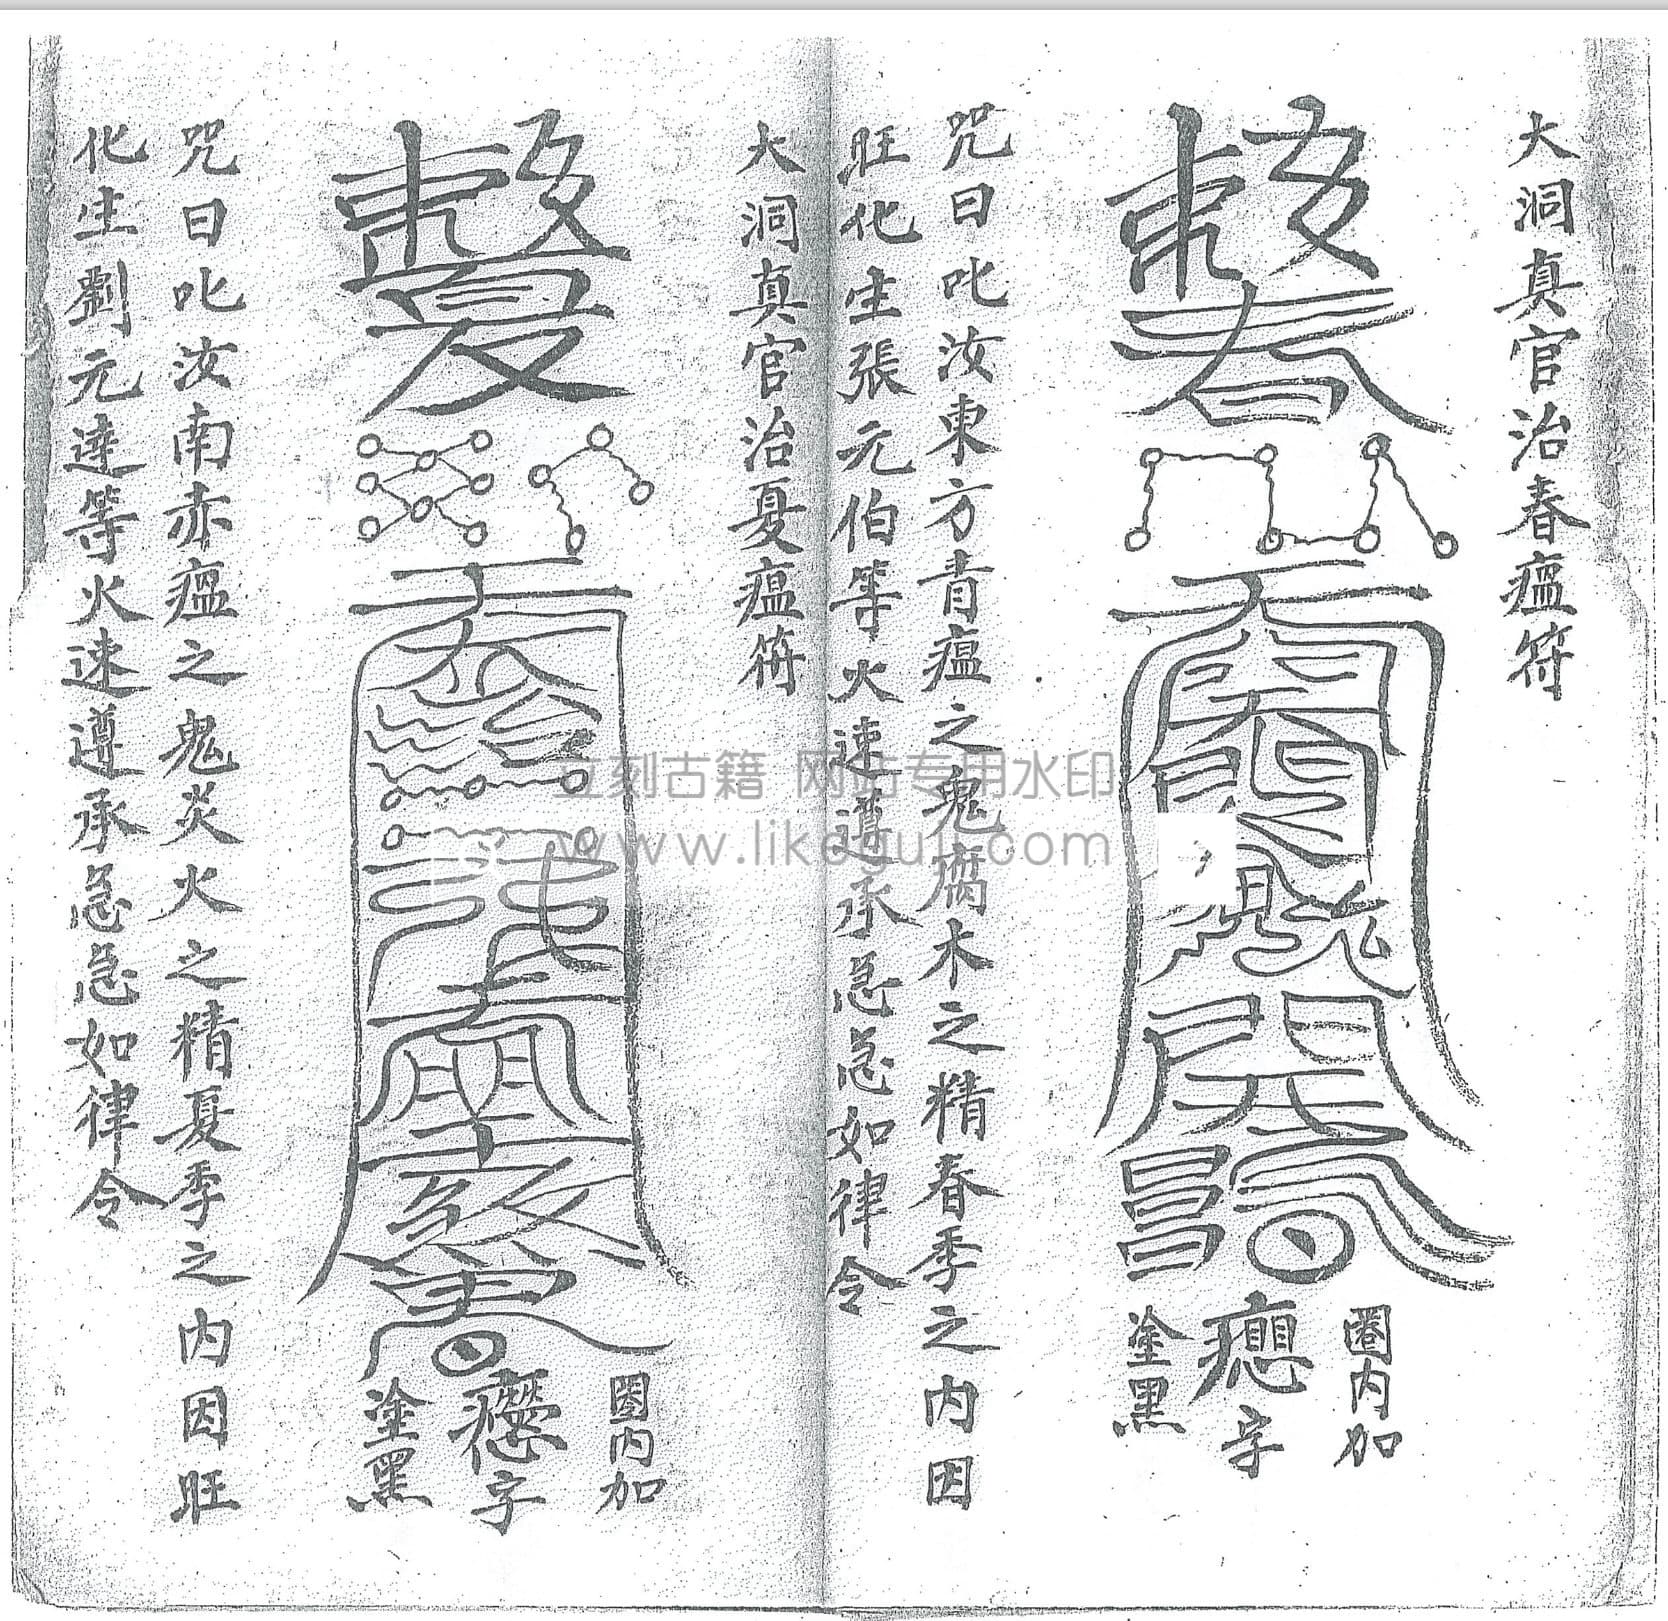 大洞真官治春瘟符
敕
春
圈内加
字
塗黑
咒曰叱汝東方青瘟之鬼腐木之精春季之内因
旺化生張元伯等火速遵承急急如律令
大洞真官治夏瘟符
敕
夏
圈内加
字
塗黑
咒曰叱汝南赤瘟之鬼炎火之精夏季之内因旺
化生劉元達等火速遵承急急如律令
立刻古籍 网站专用水印
www.likeguji.com